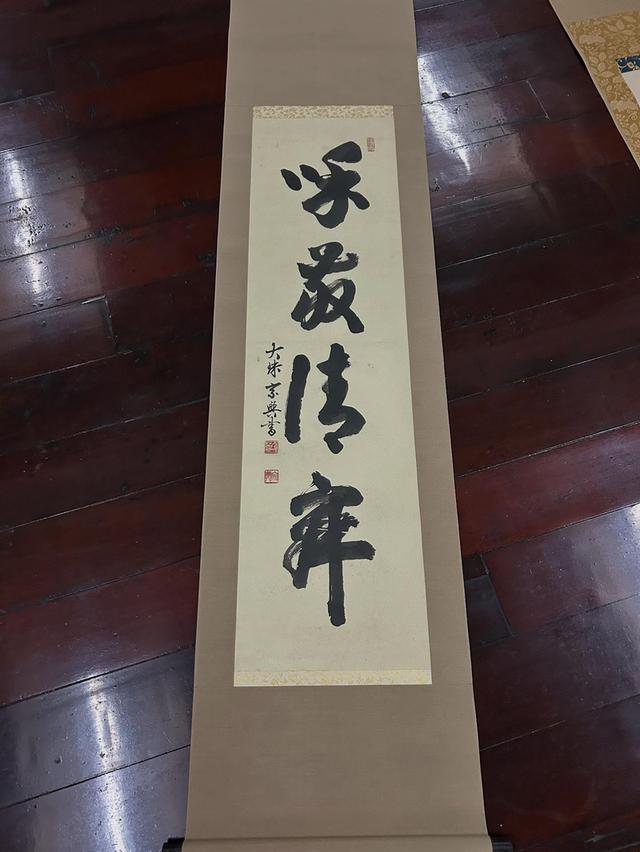 和敬清寂
大珠宗興書